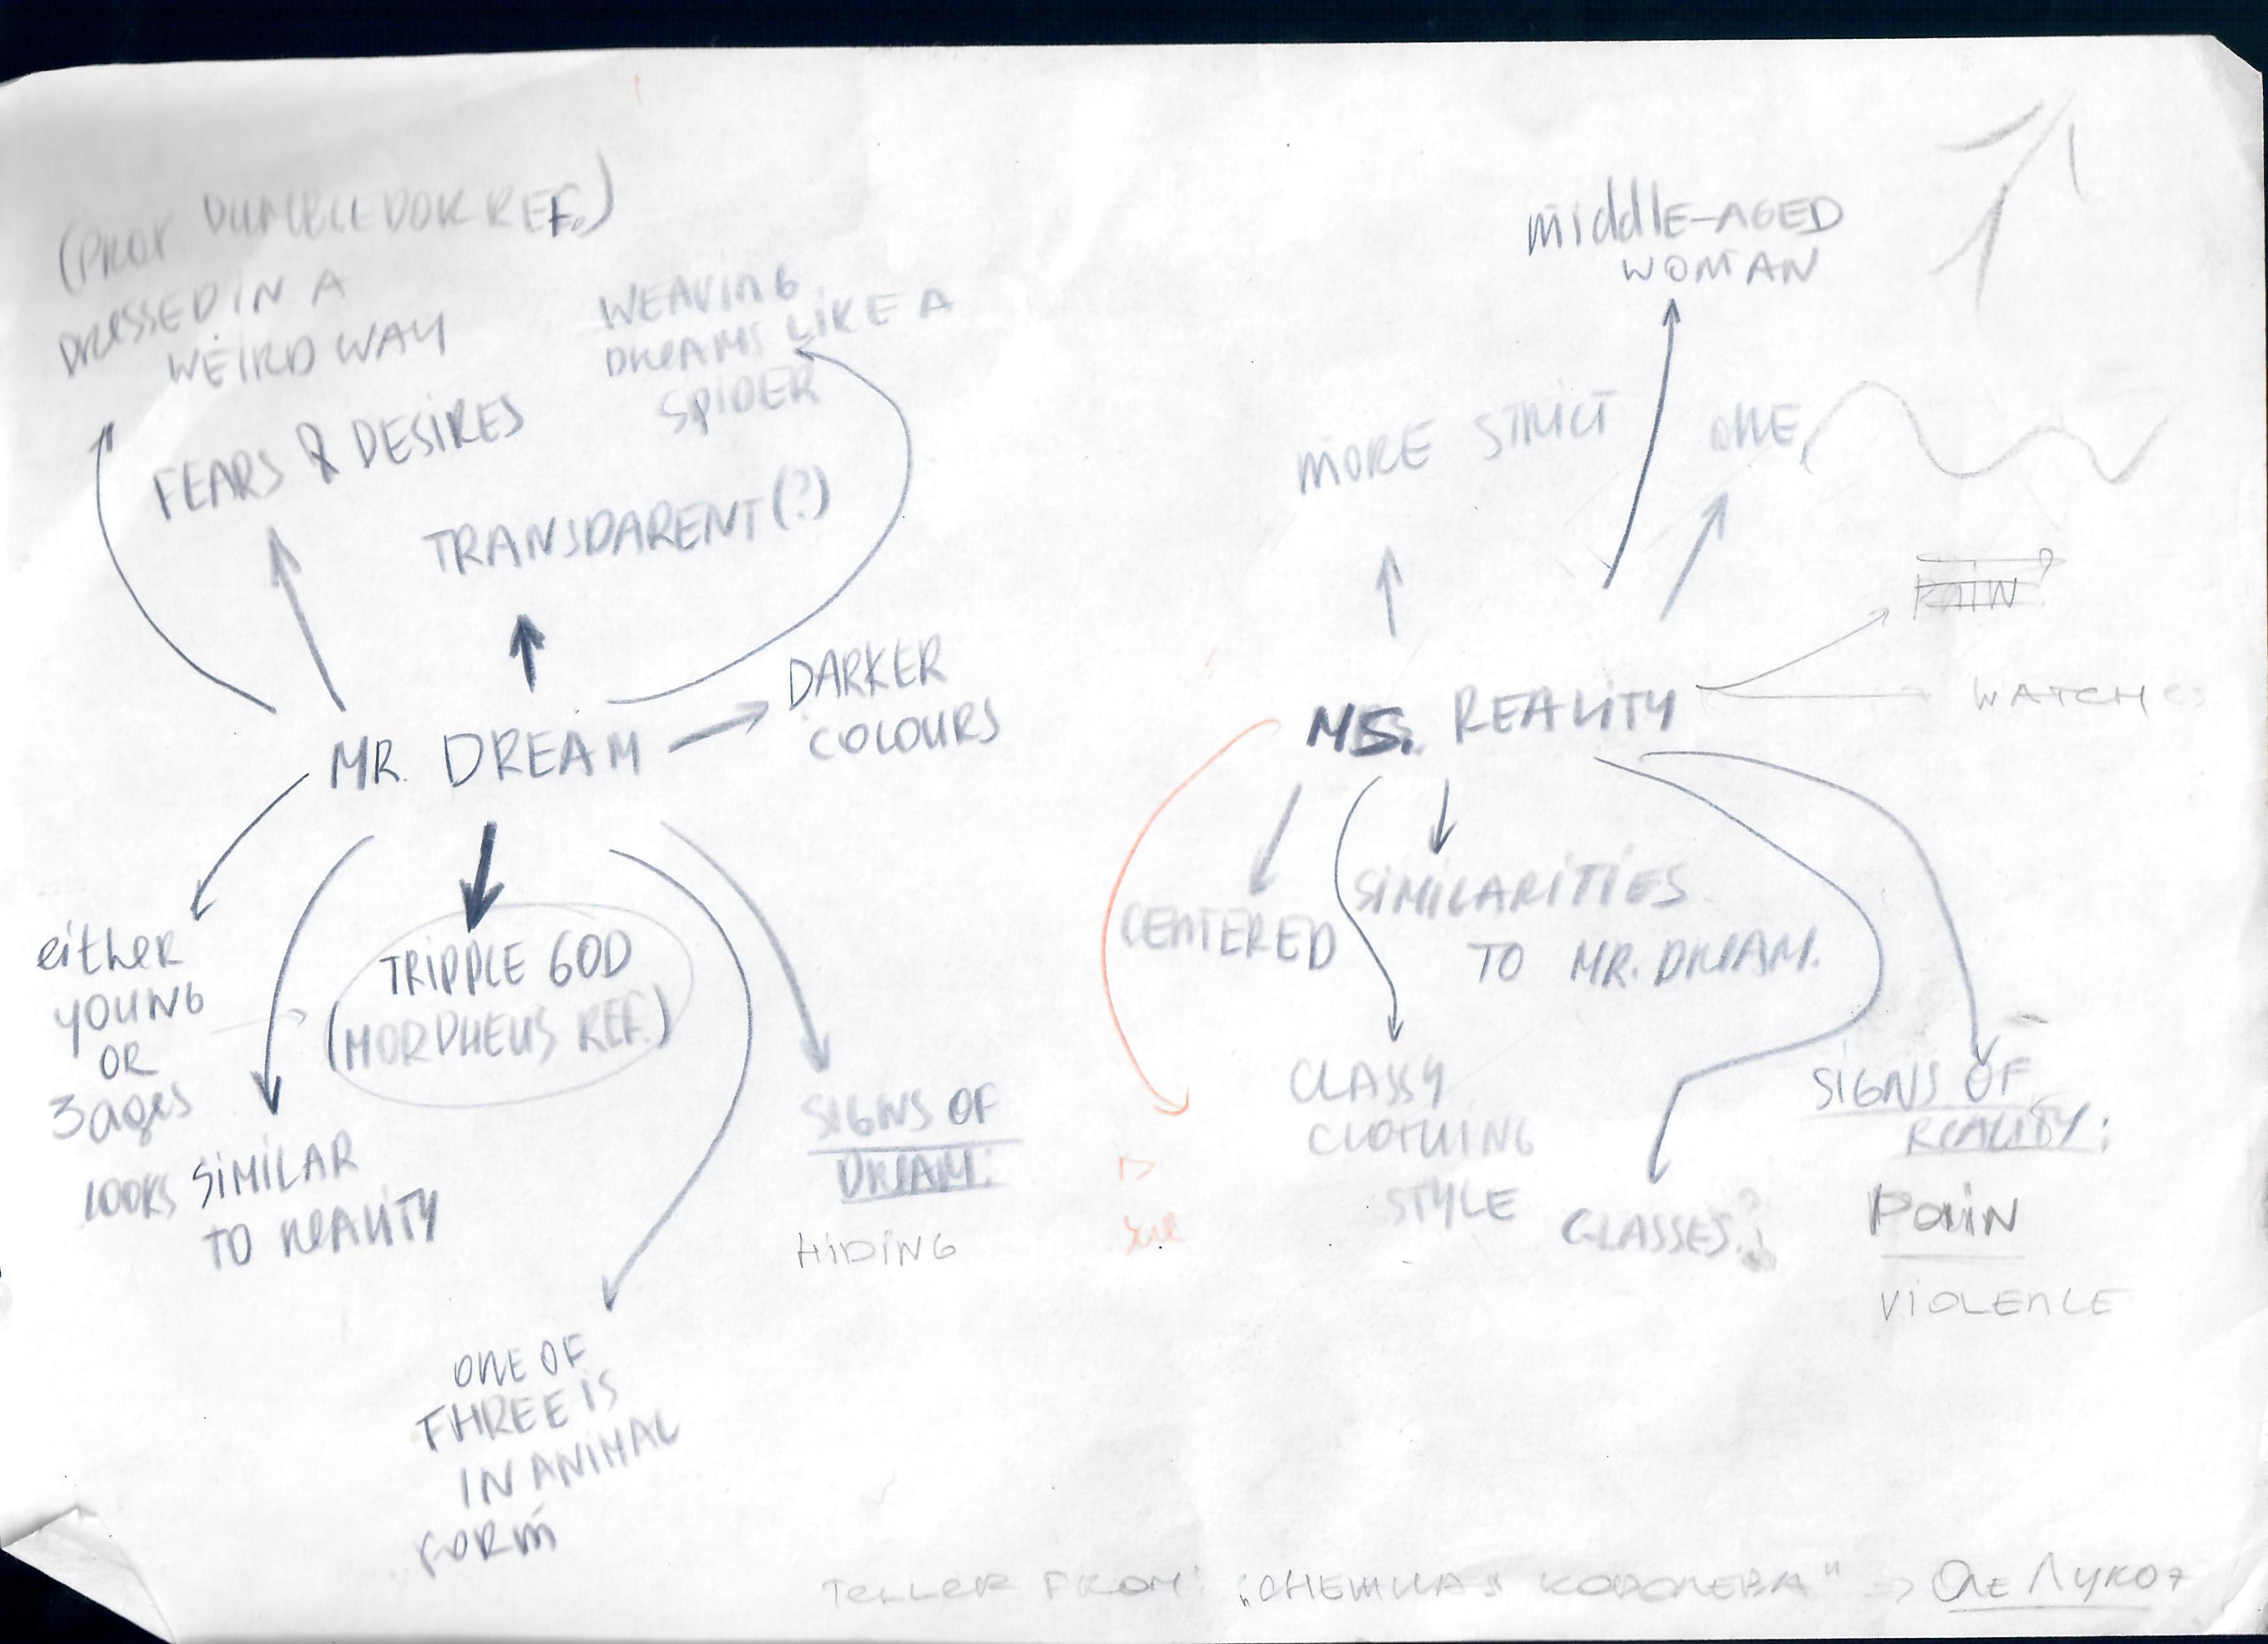 (PROF. DUMBLEDOR REF.)
DRESSED IN A
WEIRD WAY
FEARS & DESIRES
WEAVING
DREAMS LIKE A
SPIDER
TRANSPARENT (?)
DARKER
COLOURS
MR. DREAM
either
YOUNG
OR
3 ages
TRIPPLE GOD
(MORPHEUS REF.)
LOOKS SIMILAR
TO REALITY
SIGNS OF
DREAM:
HIDING
ONE OF
THREE IS
IN ANIMAL
FORM
MiddlE-AGED
WOMAN
MORE STRICT
ONE
PAIN?
WATCHES
MS. REALITY
CENTERED
SIMILARITIES
TO MR. DREAM.
CLASSY
CLOTHING
STYLE
GLASSES?
SIGNS OF
REALITY:
PAIN
VIOLENCE
TELLER FROM: „СНЕЖНАЯ КОРОЛЕВА" => Оле Луко